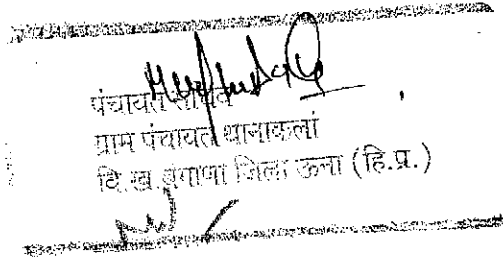 पंचायत सचिव
ग्राम पंचायत थानाकलां
वि.ख.बंगाणा जिला ऊना (हि.प्र.)